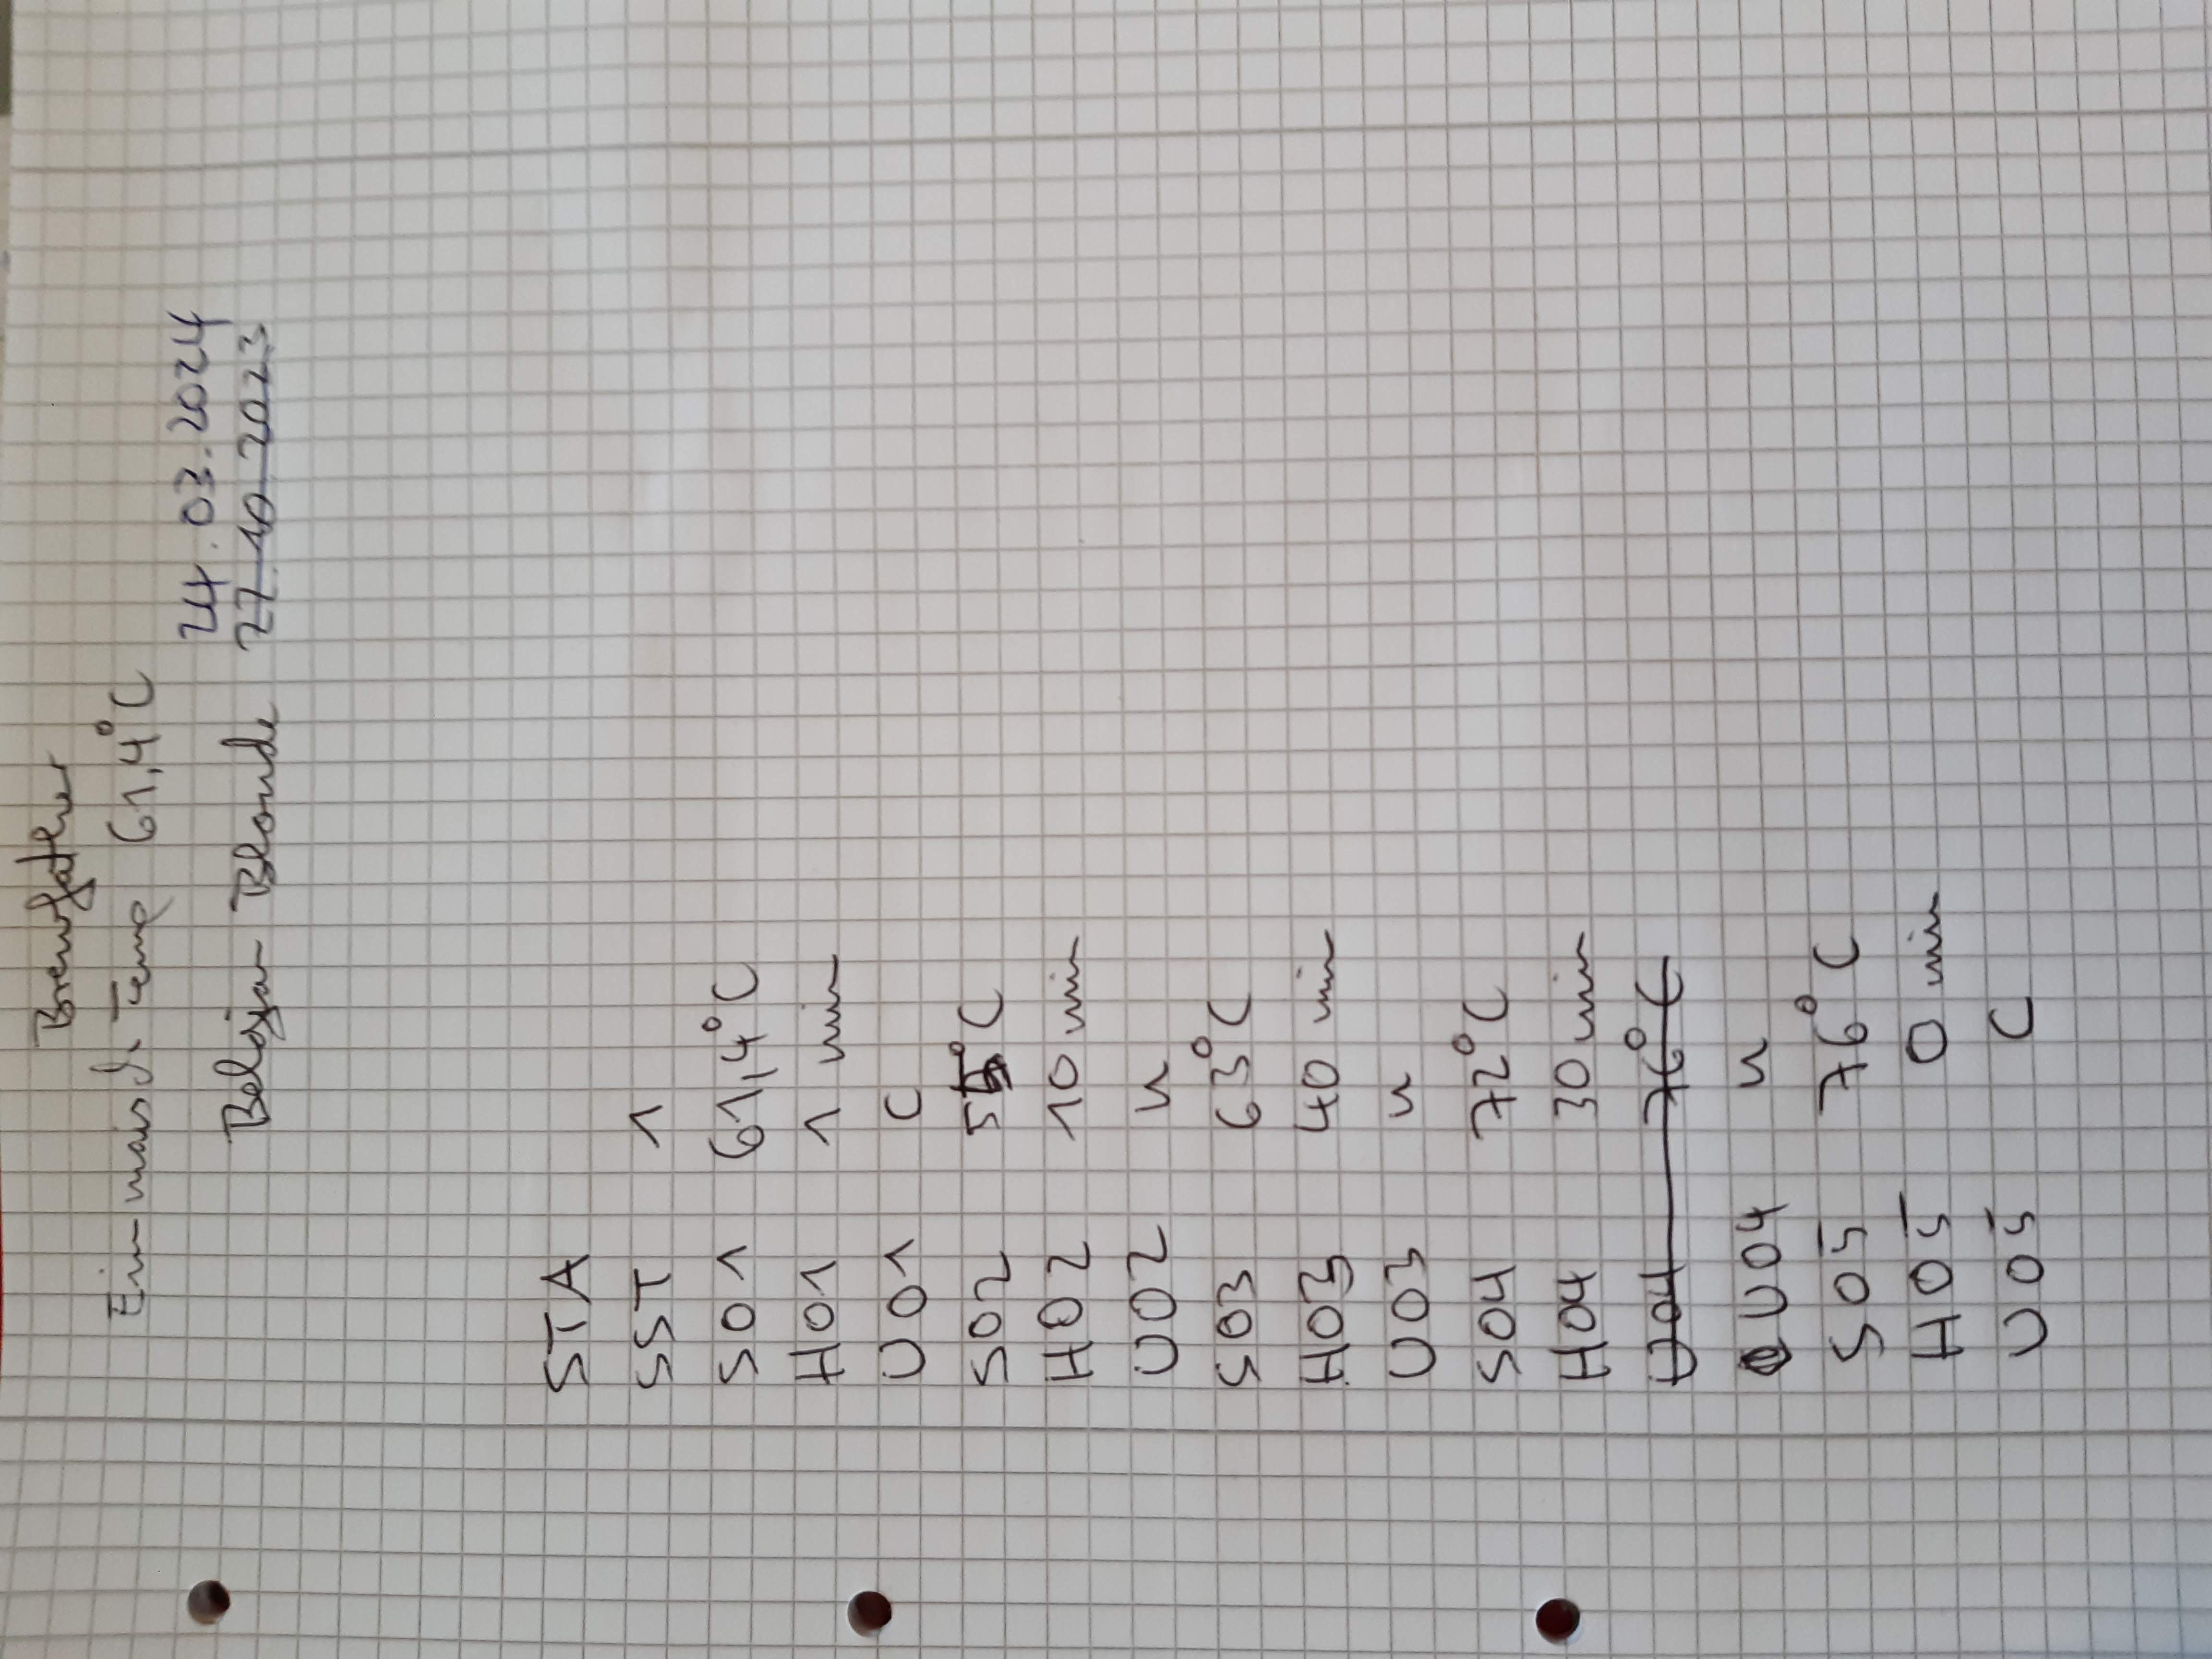 Brewfather
Einmaisch-Temp 61,4°C
24.03.2024
Belgian Blonde 27.10.2023
STA
SST 1
S01 61,4°C
H01 1 min
U01 C
S02 55°C
H02 10 min
U02 u
S03 63°C
H03 40 min
U03 u
S04 72°C
H04 30 min
U04 76°C
U04 u
S05 76°C
H05 0 min
U05 C